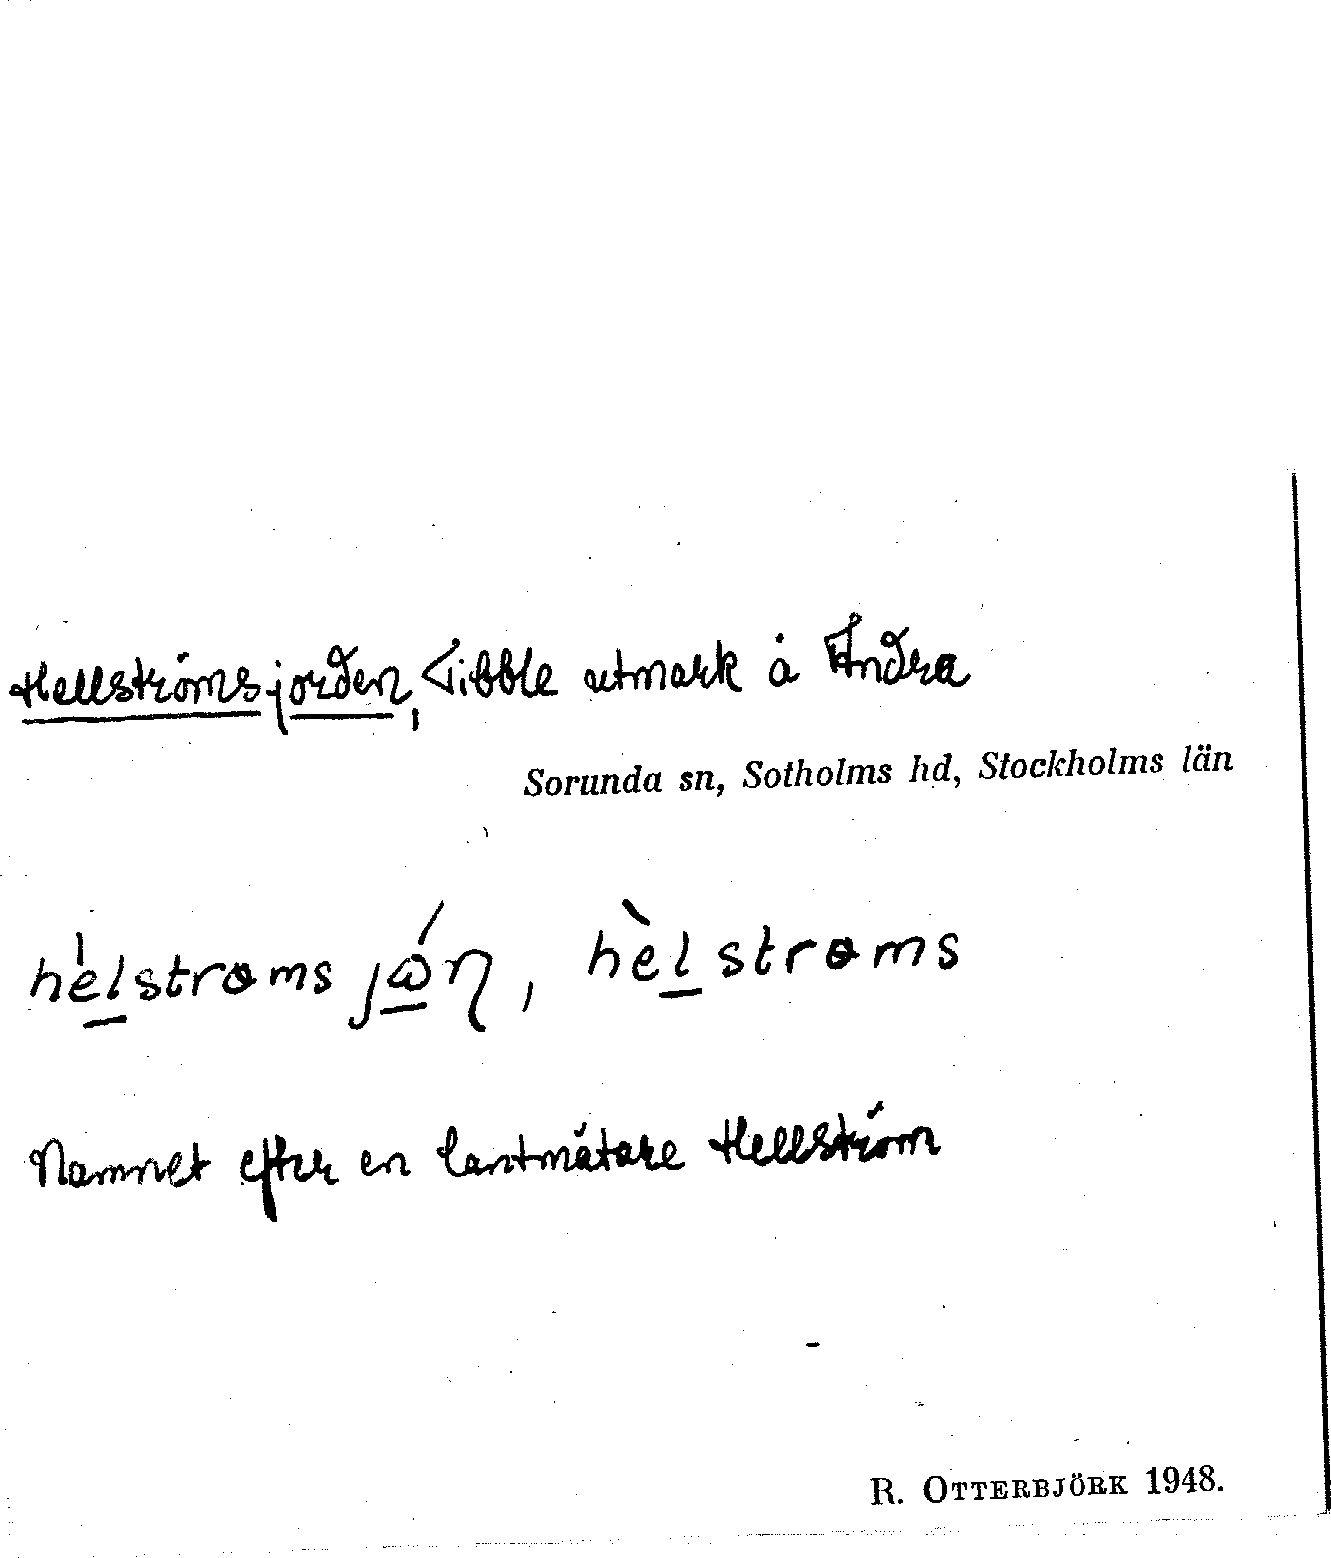 Hellströmsjorden, Tibble utmark å Andra
Sorunda sn, Sotholms hd, Stockholms län
hèlstrɵms jώη, hèlstrɵms
Namnet efter en lantmätare Hellström
R. OTTERBJÖRK 1948.